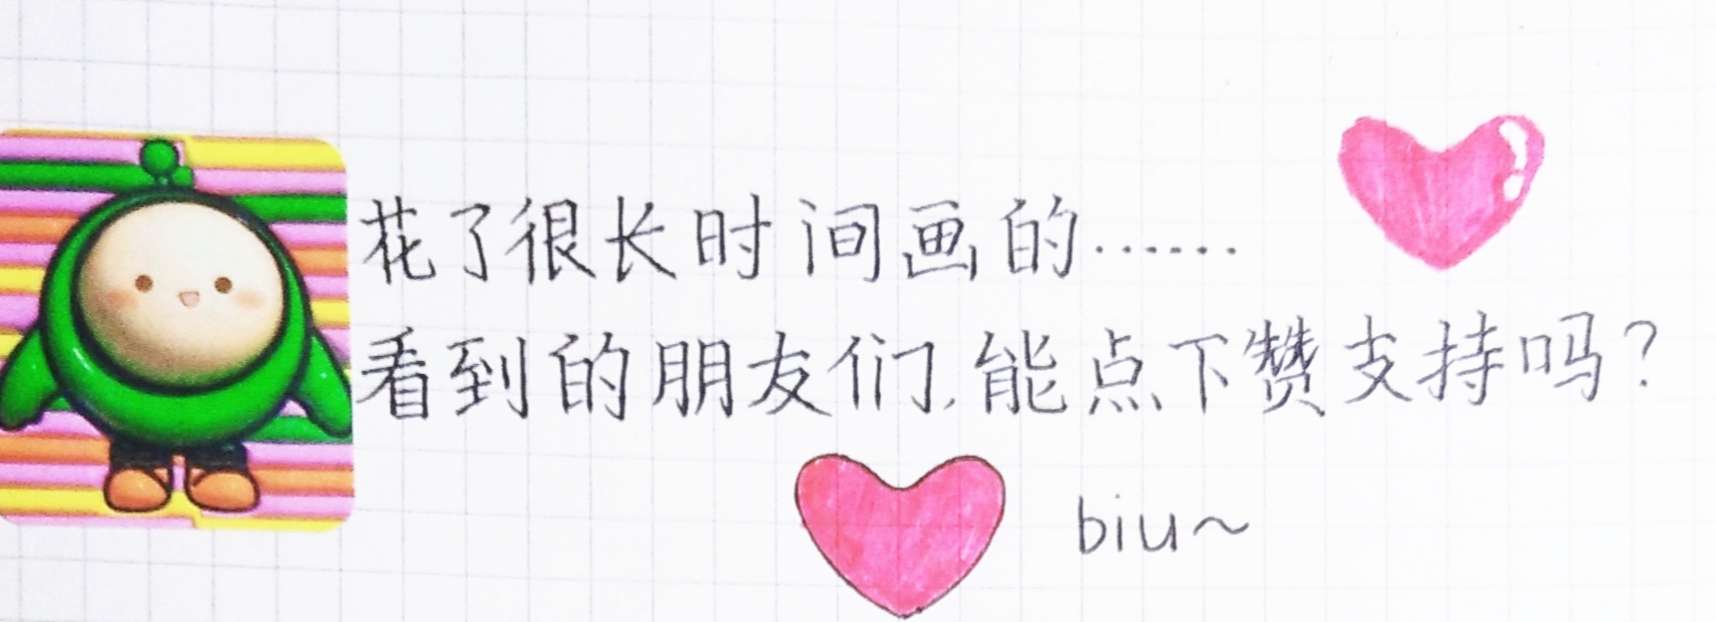 花了很长时间画的……
看到的朋友们,能点下赞支持吗?
biu~